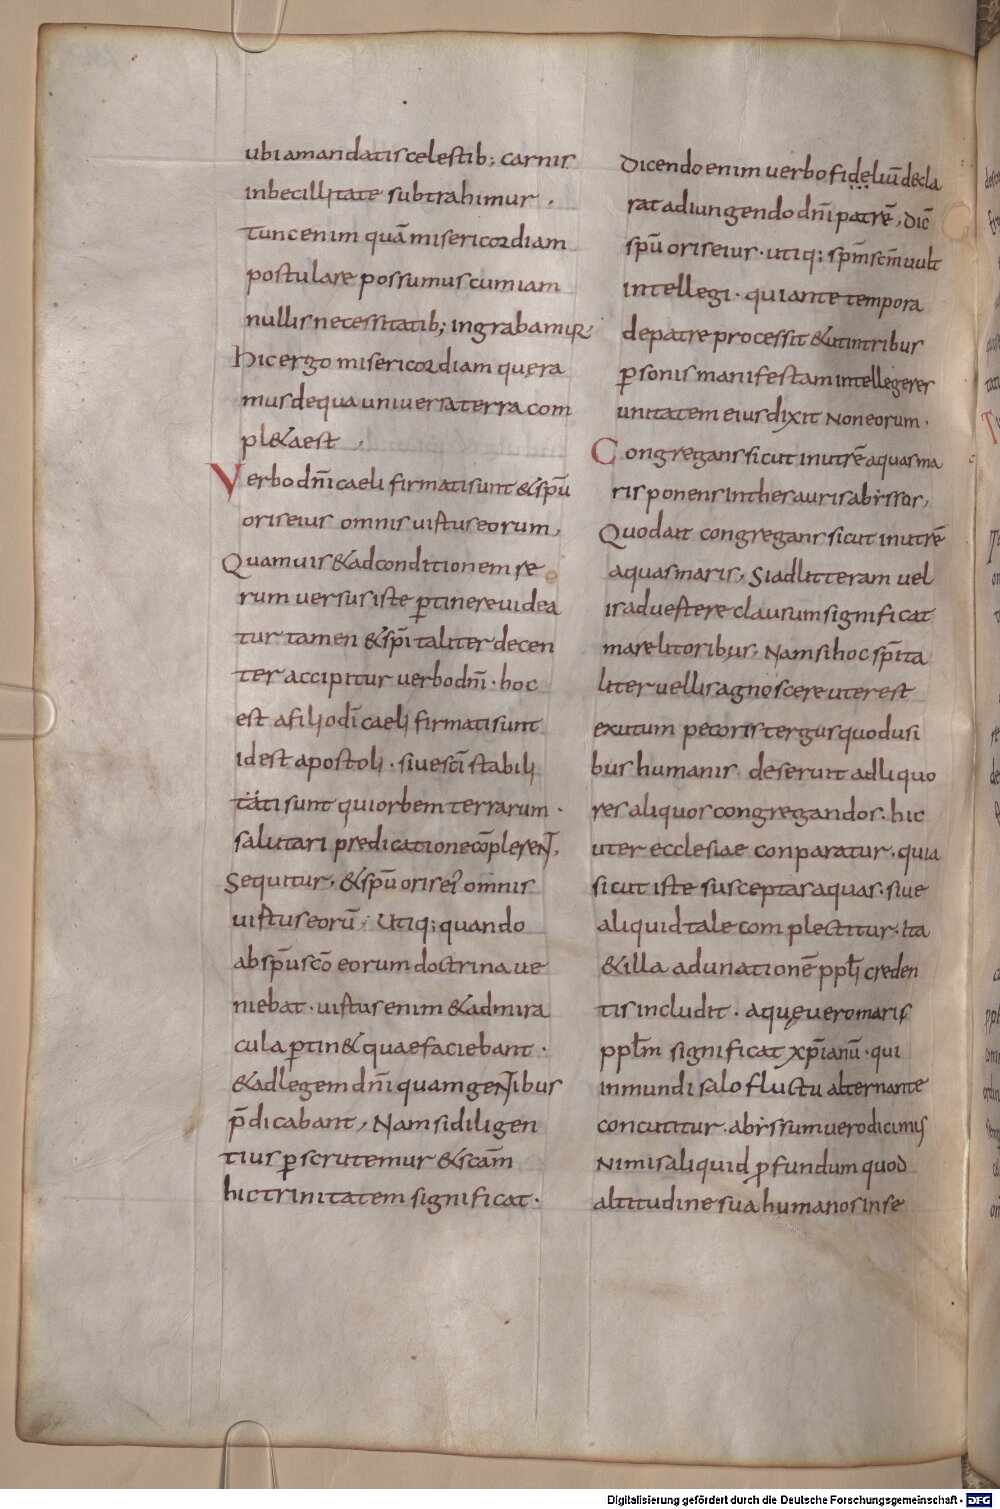 ubi amandatis celestib; carnis
inbecillitate subtrahimur .
tunc enim quā misericordiam
postulare possumus cum iam
nullis necessitatib; ingrabamur.
hic ergo misericordiam quęra
mus de qua universa terra com
pl&a est ,
Verbo dn̄i caeli firmati sunt & sp̄u
oris eius omnis uirtus eorum,
Quamuis & ad conditionem re
rum uersus iste ꝑtinere uidea
tur tamen & sp̄italiter decen
ter accipitur uerbo dn̄i · hoc
est a filio dī caeli firmati sunt
id est apostoli · siue sc̄i stabili
tati sunt qui orbem terrarum ·
salutari predicatione cōplerent,
Sequitur, & sp̄u oris ei' omnis
uirtus eorū, Utiq; quando
ab sp̄u scō eorum doctrina ue
niebat · uirtus enim & ad mira
cula ꝑtin& quae faciebant ·
& ad legem dn̄i quam gentibus
p̄dicabant, Nam si diligen
tius ꝑscrutemur & scām
hic trinitatem significat ·
Dicendo enim uerbo fideliū decla
rat adiungendo dn̄i patrē, dic̄
sp̄u oris eius · utiq; sp̄m sc̄m uult
intellegi · qui ante tempora
de patre processit & ut in tribus
ꝑsonis manifestam intellegeres
unitatem eius dixit Non eorum ·
Congregans sicut in utrē aquas ma
ris ponens in thesauris abissos,
Quod ait congregans sicut in utrē
aquas maris, Si ad litteram uel
is aduertere clausum significat
mare litoribus, Nam si hoc sp̄ita
liter uellis agnoscere uter est
exutum pecoris tergus quod usi
bus humanis deseruit ad liquo
res aliquos congregandos . hic
uter ecclesiae conparatur . quia
sicut iste susceptas aquas . siue
aliquid tale complectitur . Ita
& illa adunationē pp̄li creden
tis includit . aquę uero maris
pp̄lm significat xp̄ianū · qui
in mundi salo fluctu alternante
concutitur . abissum uero dicimus
Nimis aliquid ꝓfundum quod
altitudine sua humanos in se
Digitalisierung gefördert durch die Deutsche Forschungsgemeinschaft - DFG